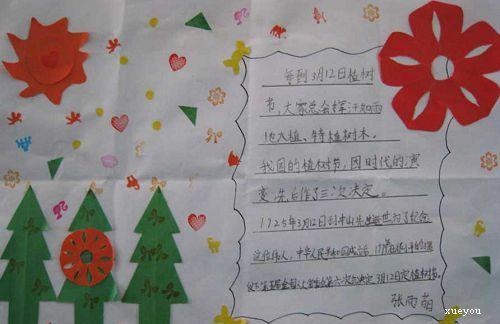 每到3月12日植树
节,大家总会挥汗如雨
地大植、特植树木。
我国的植树节,因时代的演
变,先后作了三次决定。
1925年3月12日孙中山先生逝世为了纪念
这位伟人,中华人民共和国成立后,1979年
3月12日定植树节。
张雨萌
xueyou